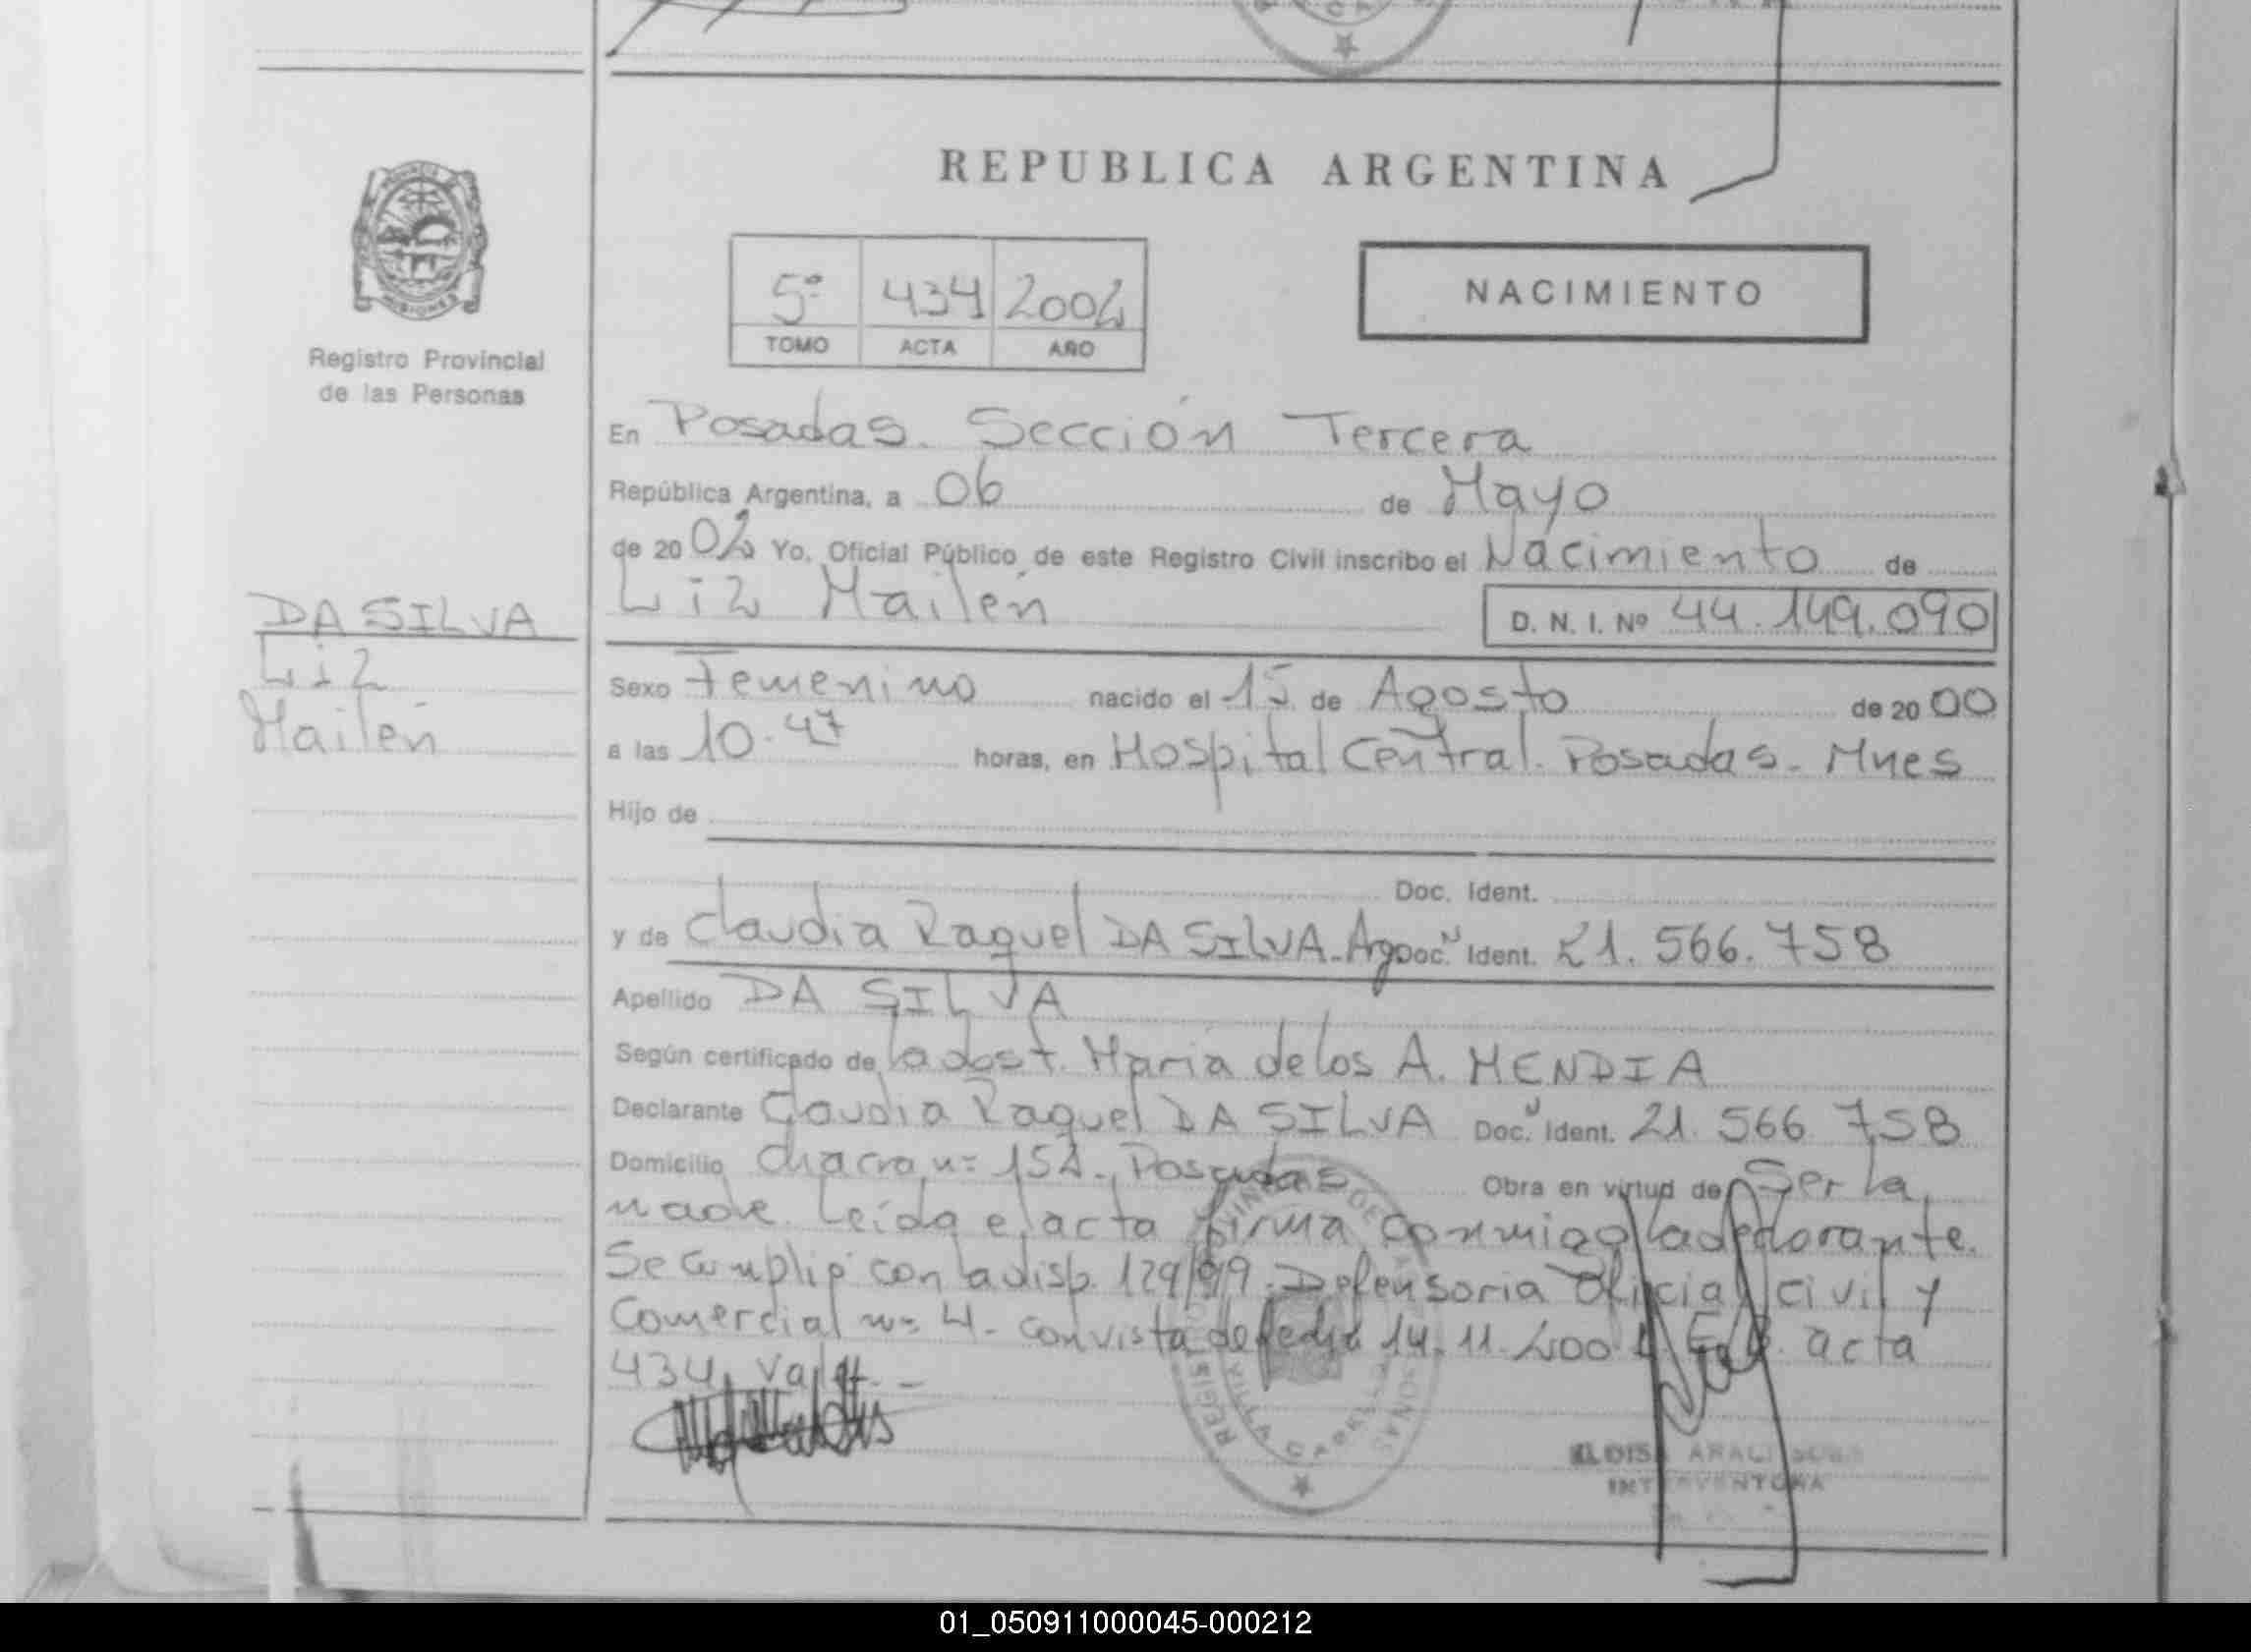 REPUBLICA ARGENTINA
5º 434 2002
TOMO ACTA AÑO
NACIMIENTO
MISIONES
Registro Provincial
de las Personas
DA SILVA
Liz
Mailén
En Posadas. Sección Tercera
República Argentina, a 06 de Mayo
de 20 02 Yo, Oficial Público de este Registro Civil inscribo el Nacimiento de
Liz Mailén
D. N. I. Nº 44.149.090
Sexo Femenino nacido el 15 de Agosto de 20 00
a las 10.47 horas, en Hospital Central. Posadas - Mnes
Hijo de
Doc. Ident.
y de Claudia Raquel DA SILVA - Arg Doc. Ident. 21.566.758
Apellido DA SILVA
Según certificado de la obst. María de los A. MENDIA
Declarante Claudia Raquel DA SILVA Doc. Ident. 21.566.758
Domicilio Chacra nº 152. Posadas Obra en virtud de Ser la
madre. Leída el acta firma conmigo la declarante.
Se cumplió con la disp. 129/99. Defensoria Oficial Civil y
Comercial nº 4 - con vista de fecha 14.11.200 acta
434 Vale. -
INTERVENTORA
01_050911000045-000212